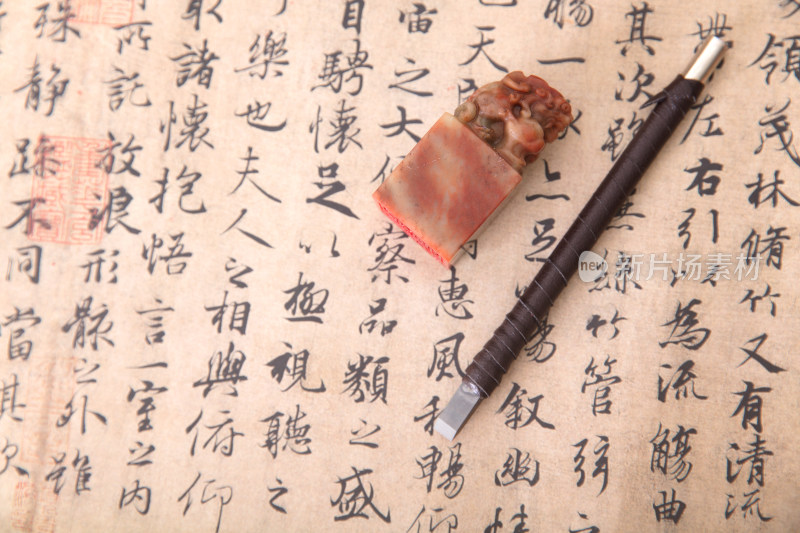 領茂林脩竹又有清流
帶左右引以為流觴曲
其次雖無絲竹管弦之
觴一亦足暢叙幽情
天惠風和暢仰
宙之大察品類之盛
目騁懷足以極視聽之
樂也夫人之相與俯仰
取諸懷抱悟言一室之内
所託放浪形骸之外雖
殊静躁不同當其欣
new 新片场素材